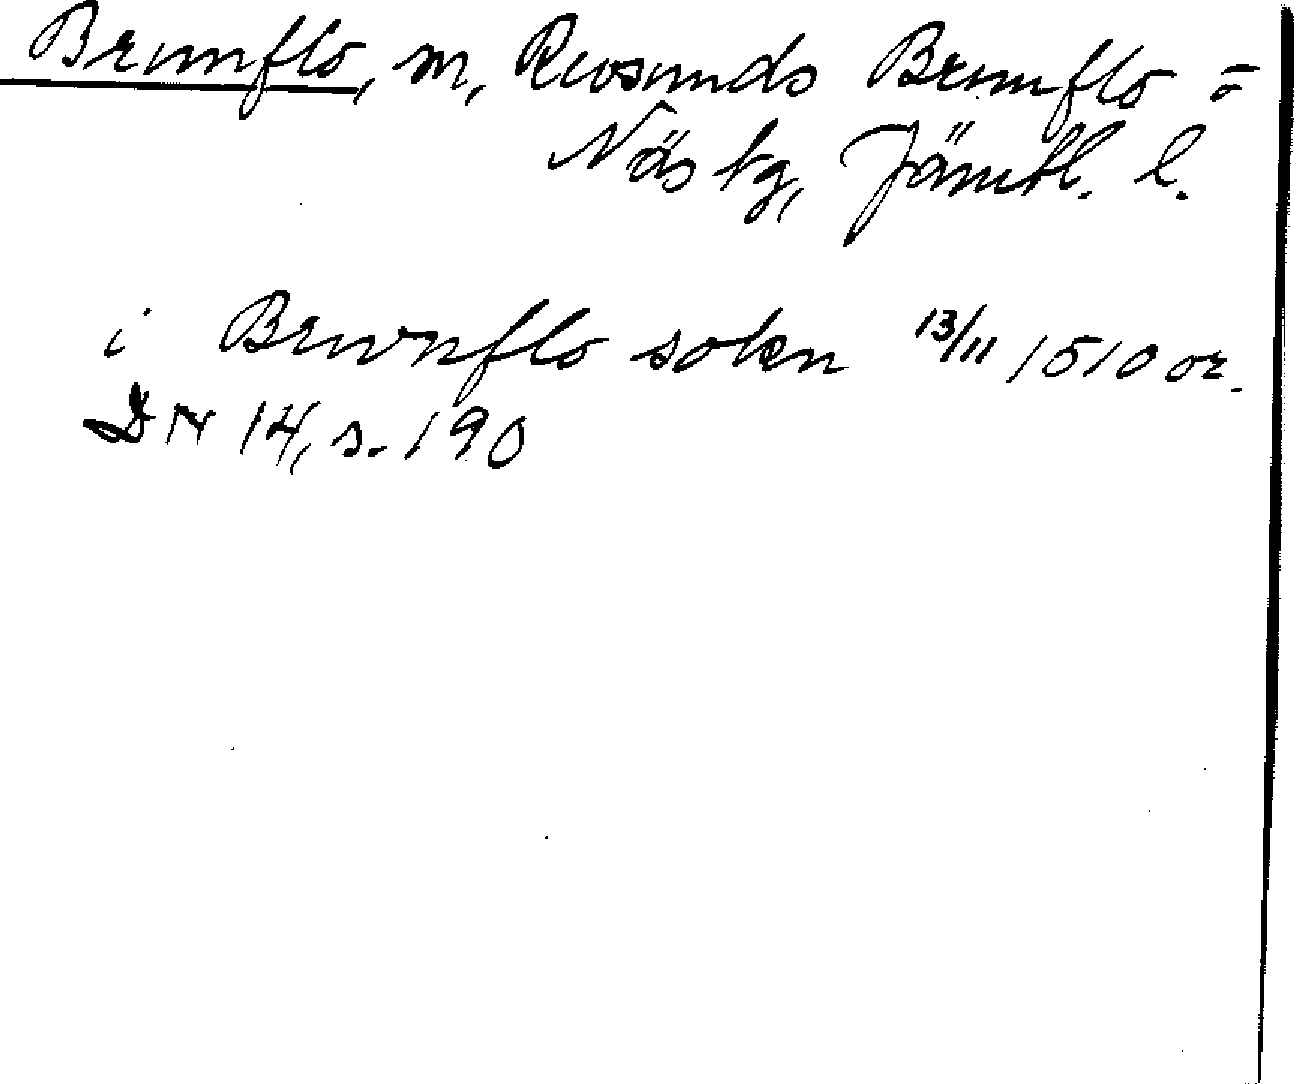 Brunflo, sn, Revsunds Brunflo o
Näs tg, Jämtl. l.
i Brwnflo sokn 13/11 1510 or.
DN 14, s. 190